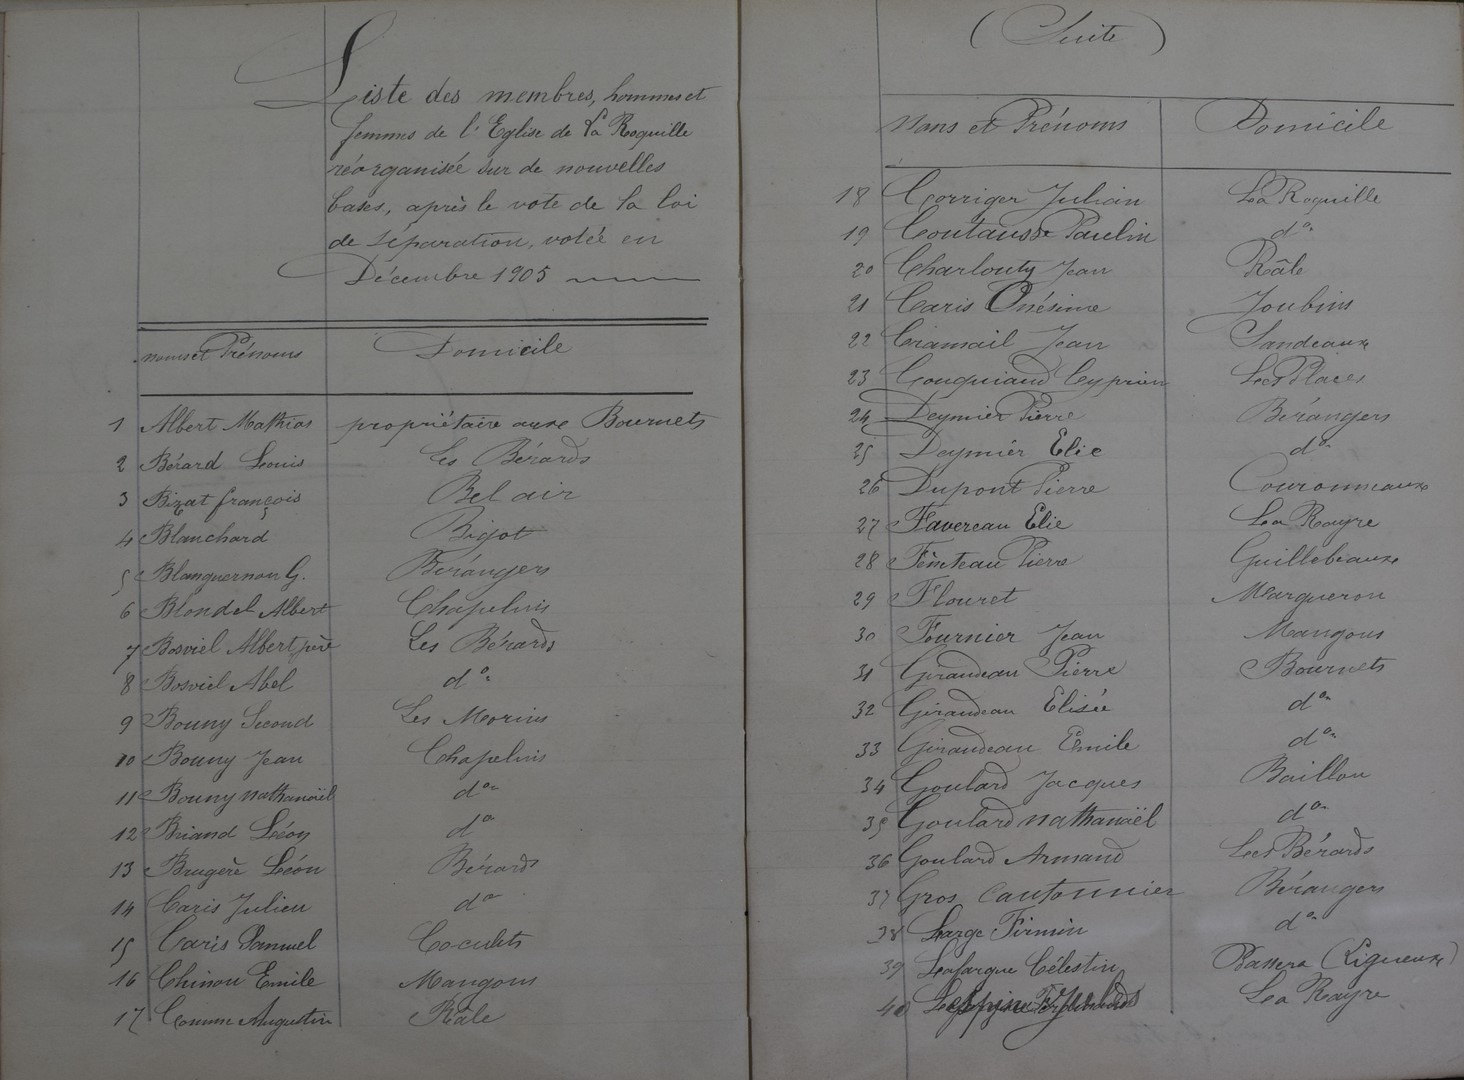 Liste des membres, hommes et
femmes de l'Eglise de La Roquille
réorganisée sur de nouvelles
bases, après le vote de la loi
de séparation, votée en
Décembre 1905
noms et Prénoms Domicile
1 Albert Mathias propriétaire aux Bournets
2 Bérard Louis Les Bérards
3 Bizat françois Bel air
4 Blanchard Bigot
5 Blanquernon G. Bérangers
6 Blondel Albert Chapelins
7 Bosviel Albert père Les Bérards
8 Bosviel Abel do
9 Bouny Second Les Morins
10 Bouny Jean Chapelins
11 Bouny nathanaël do
12 Briand Léon do
13 Brugère Léon Bérards
14 Caris Julien do
15 Caris Samuel Coculets
16 Chinou Emile Mangons
17 Augustin Râle
(Suite)
Noms et Prénoms Domicile
18 Corriger Julien La Roquille
19 Coutausse Paulin do
20 Charlouty Jean Râle
21 Caris Onésime Joubins
22 Cramail Jean Sandeaux
23 Couquiaud Cyprien Les Places
24 Deymier Pierre Bérangers
25 Deymier Elie do
26 Dupont Pierre Couronneaux
27 Favereau Elie La Rayre
28 Feinteau Pierre Guillebeaux
29 Flouret Margueron
30 Fournier Jean Mangons
31 Giraudeau Pierre Bournets
32 Giraudeau Elisée do
33 Giraudeau Emile do
34 Goulard Jacques Baillou
35 Goulard nathanaël do
36 Goulard Armand Les Bérards
37 Gros cantonnier Bérangers
38 Large Firmin do
39 Lafargue Célestin (Ligueux)
40 La Rayre